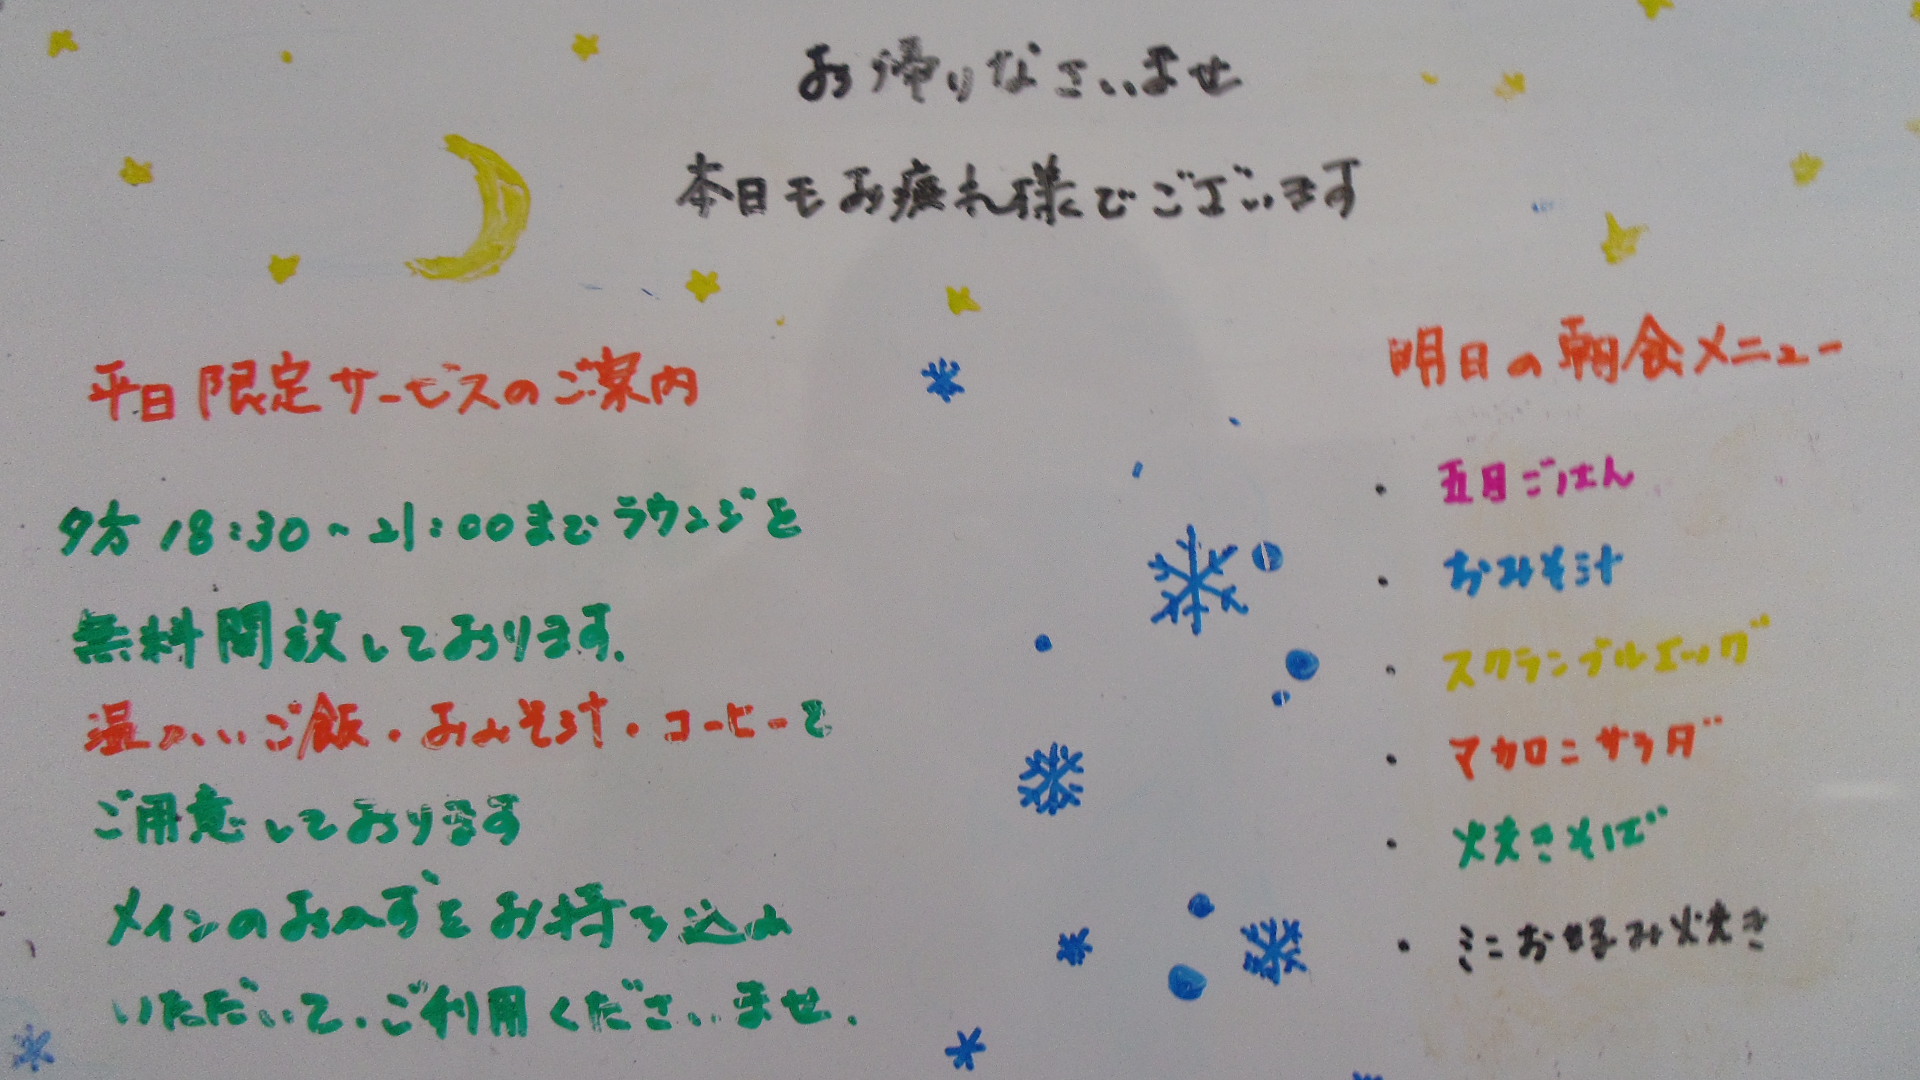 お帰りなさいませ
本日もお疲れ様でございます
平日限定サービスのご案内
夕方18:30~21:00までラウンジを
無料開放しております。
温かいご飯・おみそ汁・コーヒーを
ご用意しております
メインのおかずをお持ち込み
いただいて、ご利用くださいませ。
明日の朝食メニュー
・五目ごはん
・おみそ汁
・スクランブルエッグ
・マカロニサラダ
・焼きそば
・ミニお好み焼き